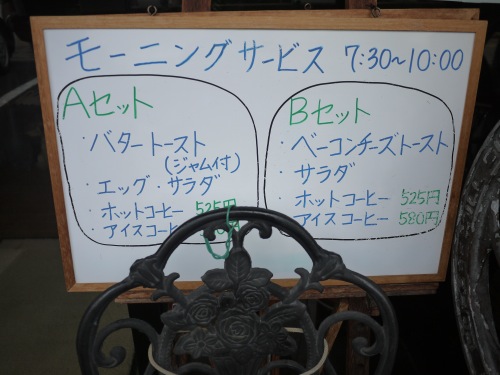 モーニングサービス 7:30~10:00
Aセット
・バタートースト
(ジャム付)
・エッグ・サラダ
・ホットコーヒー 525円
・アイスコーヒ
Bセット
・ベーコンチーズトースト
・サラダ
・ホットコーヒー 525円
・アイスコーヒー 580円